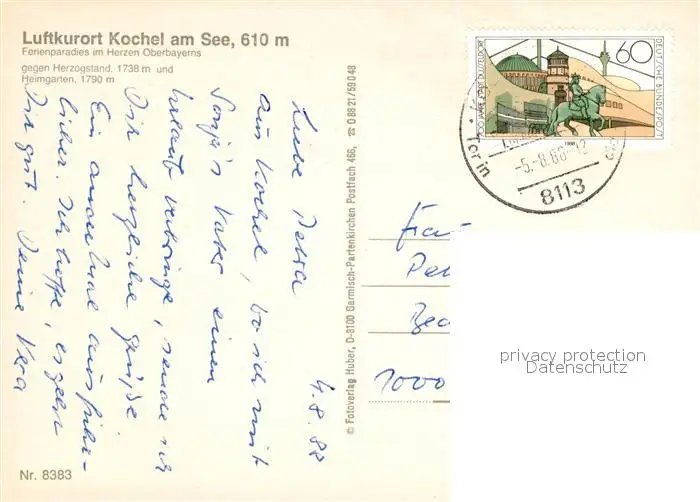 Luftkurort Kochel am See, 610 m
Ferienparadies im Herzen Oberbayerns
gegen Herzogstand, 1738 m und
Heimgarten, 1790 m
4.8.88
Liebe Petra
aus Kochel, wo ich mit
Sonja's Vater einen
Urlaub verbringe, sende ich
Dir herzliche Grüße.
Ein andermal ausführ-
licher. Ich hoffe, es geht
Dir gut. Deine Vera
Nr. 8383
© Fotoverlag Huber, D-8100 Garmisch-Partenkirchen Postfach 466, ☎ 08821/59048
700 JAHRE STADT DÜSSELDORF
60
DEUTSCHE BUNDESPOST
1988
Tor in
-5.-8.88-12
8113
Frau
Pet
1000
privacy protection
Datenschutz